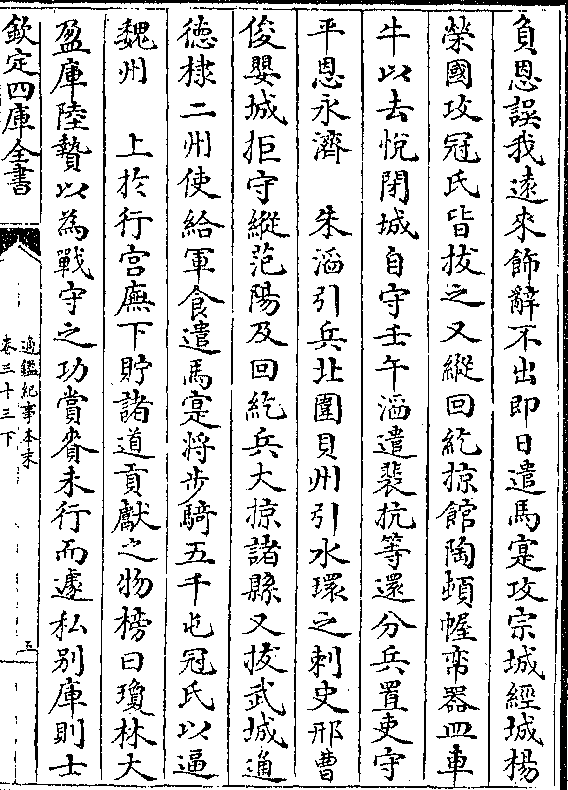 負恩誤我遠來飾辭不出即日遣馬寔攻宗城經城楊
榮國攻冠氏皆拔之又縱回紇掠館陶頓幄帟器皿車
牛以去悅閉城自守壬午滔遣裴抗等還分兵置吏守
平恩永濟　朱滔引兵北圍貝州引水環之刺史邢曹
俊嬰城拒守縱范陽及回紇兵大掠諸縣又拔武城通
德棣二州使給軍食遣馬寔將步騎五千屯冠氏以逼
魏州　上於行宮廡下貯諸道貢獻之物榜曰瓊林大
盈庫陸贄以為戰守之功賞賚未行而遽私别庫則士
欽定四庫全書
通鑑紀事本末
卷三十三下
五